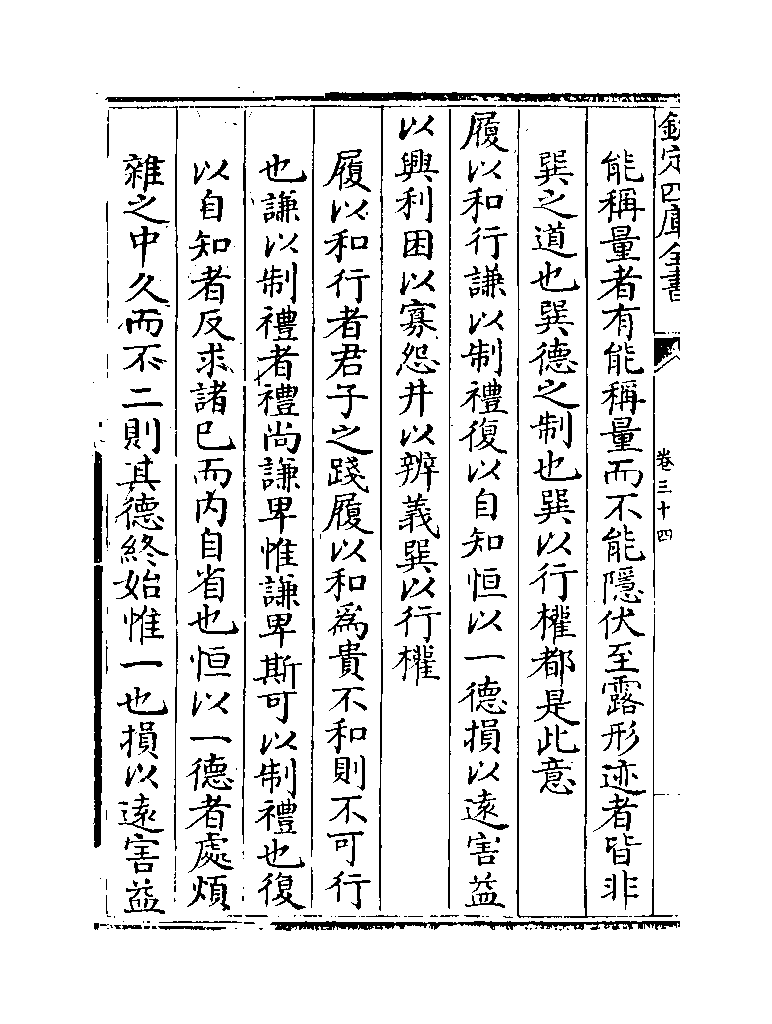 欽定四庫全書
卷三十四
能稱量者有能稱量而不能隱伏至露形迹者皆非
巽之道也巽德之制也巽以行權都是此意
履以和行謙以制禮復以自知恒以一德損以遠害益
以興利困以寡怨井以辨義巽以行權
履以和行者君子之踐履以和為貴不和則不可行
也謙以制禮者禮尚謙卑惟謙卑斯可以制禮也復
以自知者反求諸已而内自省也恒以一德者處煩
雜之中久而不二則其德終始惟一也損以遠害益